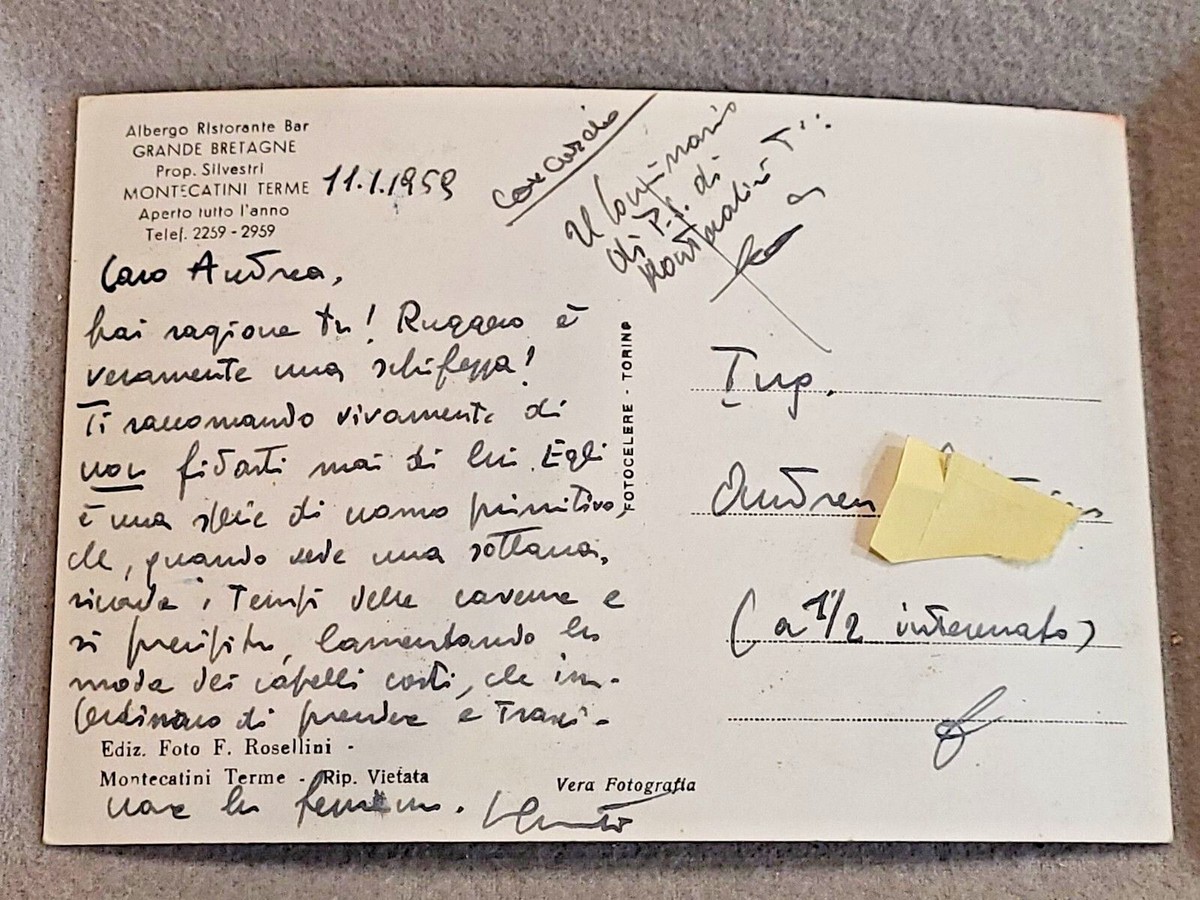 Albergo Ristorante Bar
GRANDE BRETAGNE
Prop. Silvestri
MONTECATINI TERME 11.1.1959
Aperto tutto l'anno
Telef. 2259 - 2959
Caro Andrea,
hai ragione tu! Ruggero è
veramente una schifezza!
Ti raccomando vivamente di
non fidarti mai di lui. Egli
è una specie di uomo primitivo,
che, quando vede una sottana,
ricorda i tempi delle caverne e
si precipita, lamentando la
moda dei capelli corti, che im-
pediscono di prendere e trasci-
Ediz. Foto F. Rosellini -
Montecatini Terme - Rip. Vietata
nare la femmina.
Vera Fotografia
FOTOCELERE - TORINO
Il
di P.S. di
Montecatini T.:
Ing.
Andrea
(a 1/2 interessato)